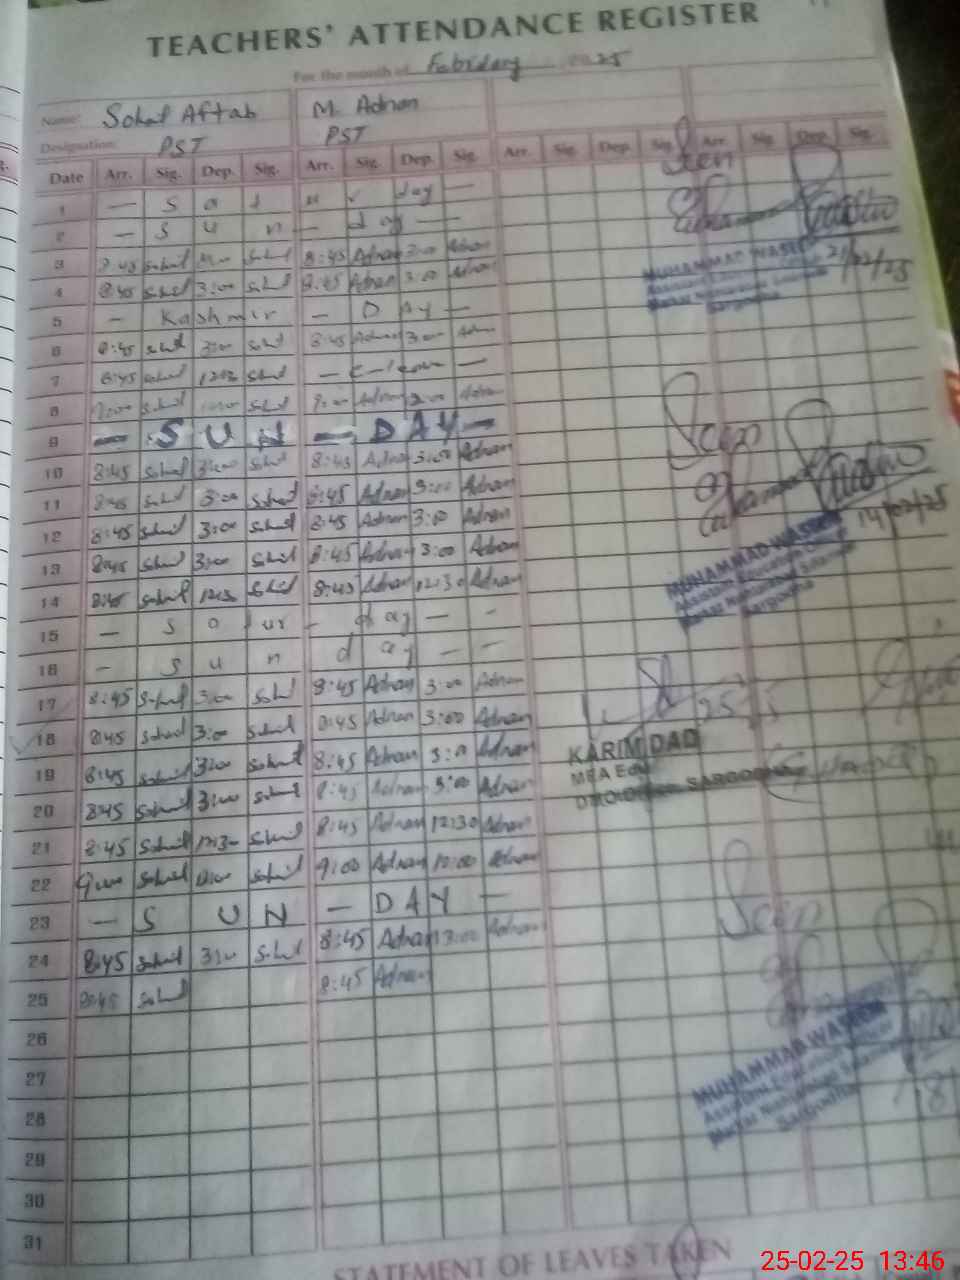 TEACHERS' ATTENDANCE REGISTER
For the month of Febrdary 2025
Name: Sohail Aftab M. Adnan
Designation: PST PST
Date Arr. Sig. Dep. Sig. Arr. Sig. Dep. Sig. Arr. Sig. Dep. Sig. Arr. Sig. Dep. Sig.
Seen
1 — S a t u r day —
2 — S U n — day —
3 8:45 Sohail Sohail 8:45 Adnan 3:00 Adnan
MUHAMMAD WASEEM 21/02/25
Assistant Education Officer
4 8:45 Sohail 3:00 Sohail 8:45 Adnan 3:00 Adnan
Sargodha
5 — Kashmir — DAY —
6 8:45 Sohail 3:00 Sohail 8:45 Adnan 3:00 Adnan
7 8:45 Sohail 12:30 Sohail — C-leave —
8 9:00 Sohail Sohail 9:00 Adnan Adnan
9 — S U N — DAY —
Seen
10 8:45 Sohail 3:00 Sohail 8:45 Adnan 3:00 Adnan
11 8:45 Sohail 3:00 Sohail 8:45 Adnan 3:00 Adnan
12 8:45 Sohail 3:00 Sohail 8:45 Adnan 3:00 Adnan
14/02/25
13 8:45 Sohail 3:00 Sohail 8:45 Adnan 3:00 Adnan
MUHAMMAD WASEEM
Assistant Education Officer
14 8:45 Sohail 12:30 Sohail 8:45 Adnan 12:30 Adnan
Sargodha
15 — S a tur — day — —
16 — S u n day — —
17 8:45 Sohail 3:00 Sohail 8:45 Adnan 3:00 Adnan
18 8:45 Sohail 3:00 Sohail 8:45 Adnan 3:00 Adnan
KARIM DAD
19 8:45 Sohail 3:00 Sohail 8:45 Adnan 3:00 Adnan
MEA Edu
SARGODHA
20 8:45 Sohail 3:00 Sohail 8:45 Adnan 3:00 Adnan
21 8:45 Sohail 12:30 Sohail 8:45 Adnan 12:30 Adnan
22 9:00 Sohail Sohail 9:00 Adnan 10:00 Adnan
23 — S U N — DAY —
Seen
24 8:45 Sohail 3:00 Sohail 8:45 Adnan 3:00 Adnan
25 8:45 Sohail 8:45 Adnan
26
MUHAMMAD WASEEM
Assistant Education Officer
27
Sargodha
28
29
30
31
STATEMENT OF LEAVES TAKEN
25-02-25 13:46